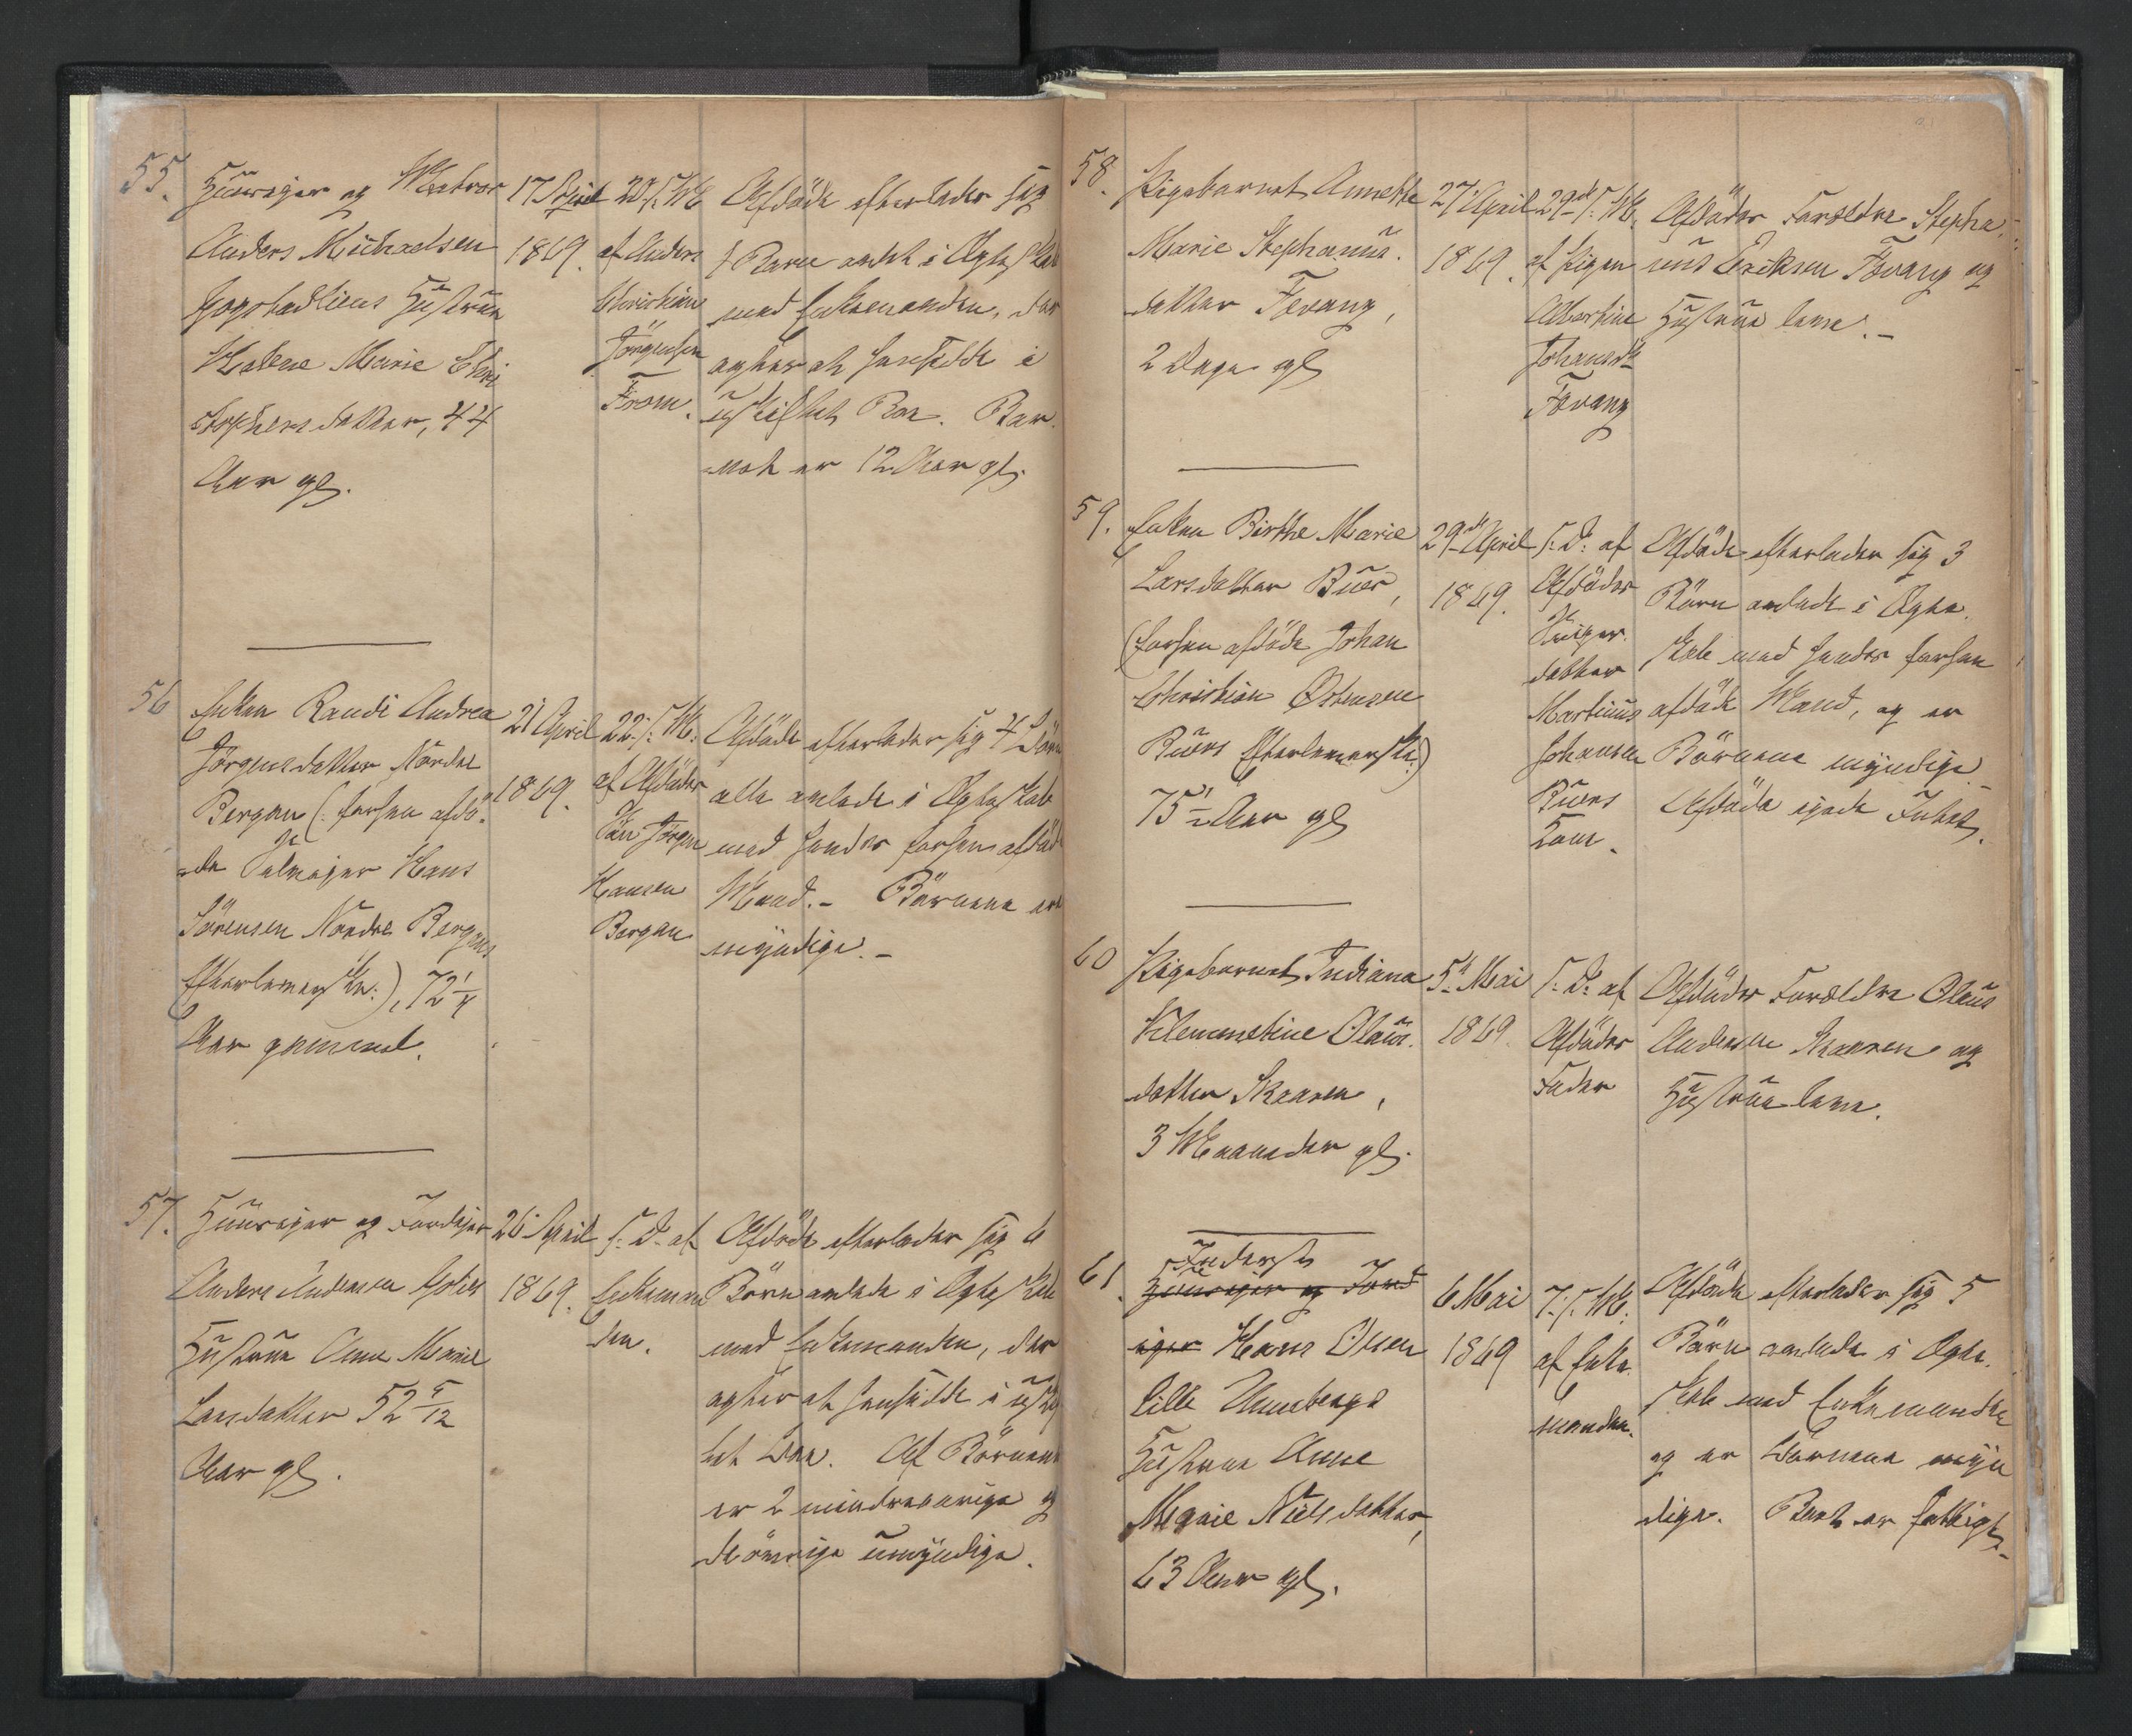 55. Huuseier og Matros
Anders Michaelsen
Gogstadliens Hustrue
Malene Marie Chri
stophersdatter, 44
Aar gl.
17 April
1869.
20 s. M.
af Anders
Christian
Jörgensen
From.
Afdöde efterlader sig
1 Barn avlet i Ægteskab
med Enkemanden, der
agter at hensidde i
uskiftet Bo. Bar-
net er 12 Aar gl.
56 Enken Randi Andrea
Jörgensdatter Nordre
Bergan (: forhen afdö-
de Selveier Hans
Sörensen Nordre Bergans
Efterleverske:), 72 1/4
Aar gammel.
21 April
1869.
22 s. M.
af Afdödes
Sön Jörgen
Hansen
Bergan
Afdöde efterlader sig 4 Börn
alle avlede i Ægteskab
med hendes forhen afdöde
Mand. - Börnene ere
myndige. -
57. Huuseier og Jordeier
Anders Andersen
Hustrue Anne Marie
Larsdatter 52 5/12
Aar gl.
26 April
1869.
s. D. af
Enkeman
den.
Afdöde efterlader sig 6
Börn avlede i Ægteskab
med Enkemanden, der
agter at hensidde i uskif
tet Boe. Af Börnene
er 2 mindreaarige og
de övrige umyndige.
58. Pigebarnet Annette
Marie Stephanus-
datter Fevang,
2 Dage gl
27 April
1869.
29de s. M.
af Pigen
Albertine
Johansdtr
Fevang
Afdödes Forældre Stepha-
nus Eriksen Fevang og
Hustrue leve. -
59. Enken Birthe Marie
Larsdatter Buer,
(forhen afdöde Johan
Christian Östensen
Buers Efterleverske:)
75 1/2 Aar gl
29de April
1869.
s. D. af
Afdödes
Sviger-
datter
Martinus
Johansen
Buers
Kone.
Afdöde efterlader sig 3
Börn avlede i Ægte-
skab med hendes forhen
afdöde Mand, og er
Börnene myndige
Afdöde eiede Intet.
60 Pigebarnet Indiana
Klementine Olaus-
datter Skaaren,
3 Maaneder gl.
5te Mai
1869.
s. D. af
Afdödes
Fader
Afdödes Forældre Olaus
Andersen Skaaren og
Hustrue leve.
61. Inderste
Huuseier og Jord
eier Hans Olsen
lille Unnebergs
Hustrue Anne
Marie Nielsdatter,
63 Aar gl.
6 Mai
1869
7. s. M.
af Enke-
manden.
Afdöde efterlader sig 5
Börn avlede i Ægte-
skab med Enkemanden
og er Börnene myn
dige. Boet er fattigt. -